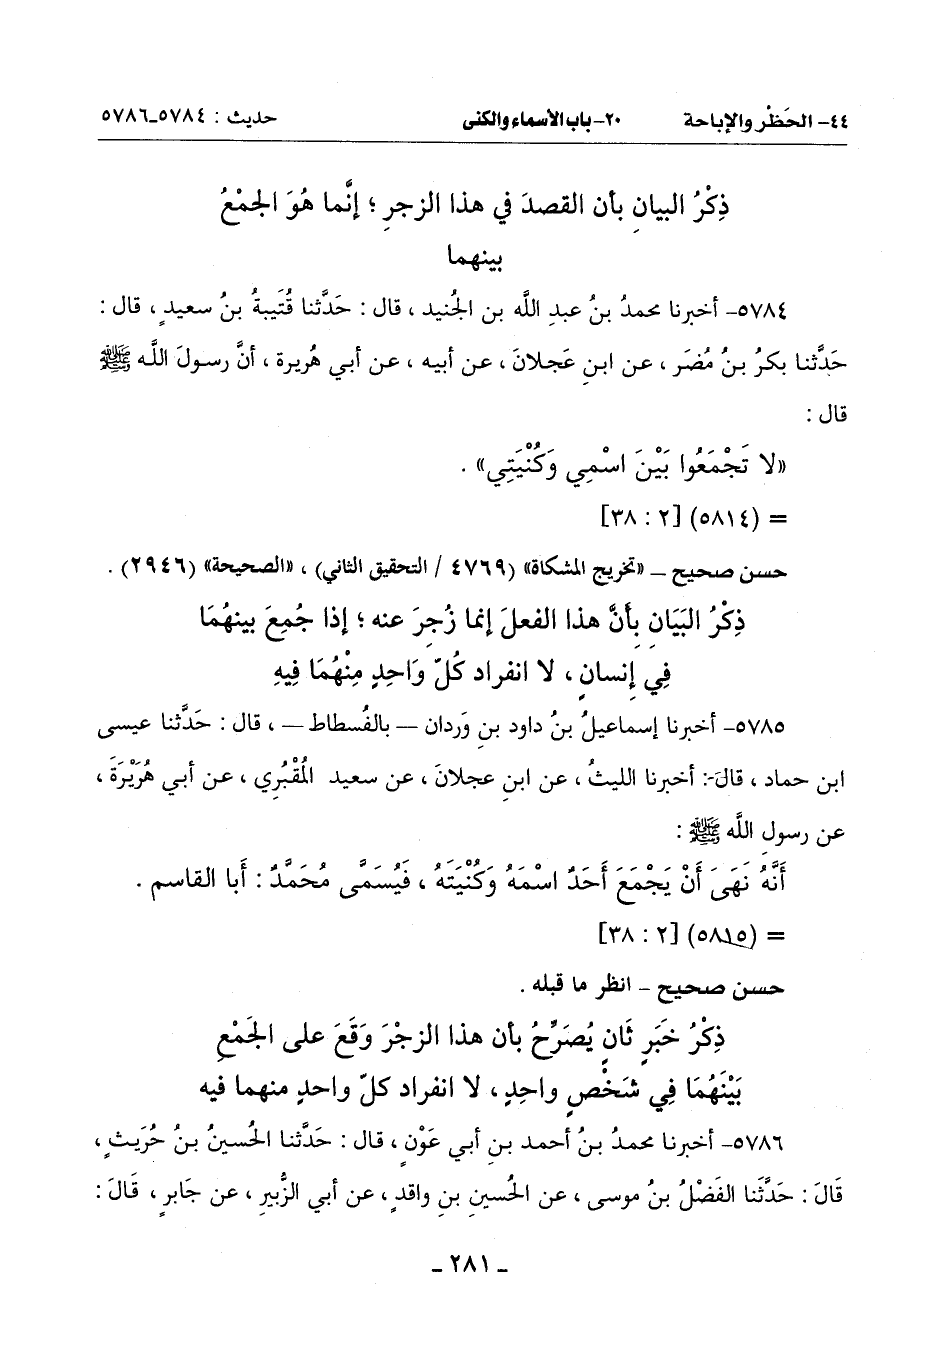 ٤٤- الحَظْر والإباحة ٢٠-باب الأسماء والكنى حديث : ٥٧٨٤-٥٧٨٦
ذِكْرُ البيانِ بأن القصدَ في هذا الزجرِ ؛ إنَّما هُوَ الجمْعُ
بينهما
٥٧٨٤- أخبرنا محمدُ بنُ عبدِ اللَّه بن الجُنيد ، قال : حَدَّثنا قُتَيبةُ بنُ سعيدٍ ، قال :
حَدَّثنا بكرُ بنُ مُضَر ، عن ابنِ عَجلانَ ، عن أبيه ، عن أبي هُريرة ، أنَّ رسولَ اللَّه ﷺ
قال :
«لا تَجْمَعُوا بَيْنَ اسْمِي وَكُنْيَتِي» .
= (٥٨١٤) [٢ : ٣٨]
حسن صحيح ـ «تخريج المشكاة» (٤٧٦٩ / التحقيق الثاني) ، «الصحيحة» (٢٩٤٦) .
ذِكْرُ البَيَانِ بأنَّ هذا الفعلَ إنما زُجِرَ عنه ؛ إذا جُمِعَ بينهُمَا
فِي إِنسانٍ ، لا انفراد كُلّ وَاحِدٍ مِنْهُمَا فِيهِ
٥٧٨٥- أخبرنا إسماعيلُ بنُ داود بنِ وَردان — بالفُسطاط — ، قال : حَدَّثنا عيسى
ابن حماد ، قالَ : أخبرنا الليثُ ، عن ابنِ عجلانَ ، عن سعيد المُقْبُري ، عن أبي هُرَيْرَةَ ،
عن رسول اللَّه ﷺ :
أَنَّهُ نَهَى أَنْ يَجْمَعَ أَحَدٌ اسْمَهُ وَكُنْيَتَهُ ، فَيُسَمَّى مُحَمَّدٌ : أَبا القاسم .
= (٥٨١٥) [٢ : ٣٨]
حسن صحيح ـ انظر ما قبله .
ذِكْرُ خَبَرٍ ثَانٍ يُصَرِّحُ بأن هذا الزجْرَ وَقَعَ على الجَمْعِ
بَيْنَهُمَا فِي شَخْصٍ واحِدٍ ، لا انفراد كلّ واحدٍ منهما فيه
٥٧٨٦- أخبرنا محمدُ بنُ أحمد بنِ أبي عَوْنٍ ، قال : حَدَّثنا الحُسينُ بنُ حُرَيثٍ ،
قَالَ : حَدَّثَنا الفَضْلُ بنُ موسى ، عن الحُسينِ بنِ واقدٍ ، عن أبي الزُّبيرِ ، عن جَابرٍ ، قَالَ :
ـ ٢٨١ ـ